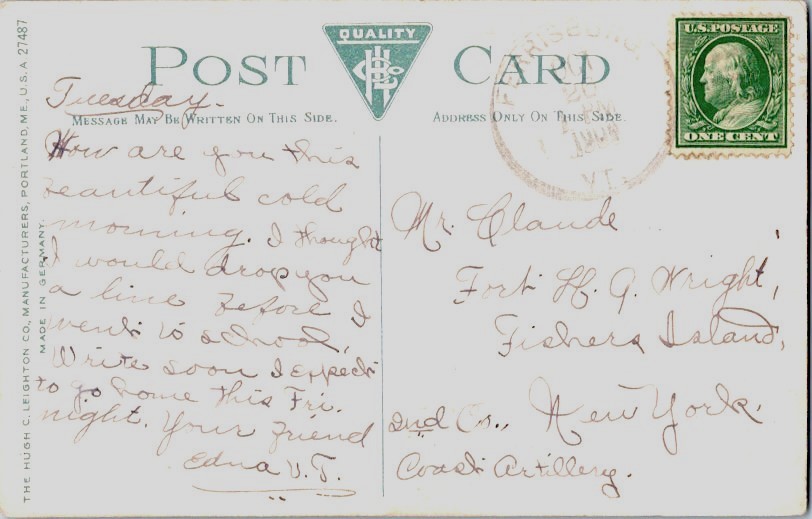 POST CARD
QUALITY
HLCo
MESSAGE MAY BE WRITTEN ON THIS SIDE.
ADDRESS ONLY ON THIS SIDE.
U.S. POSTAGE
ONE CENT
FERRISBURG
VT.
THE HUGH C. LEIGHTON CO., MANUFACTURERS, PORTLAND, ME., U.S.A. 27487
MADE IN GERMANY.
Tuesday.
How are you this
beautiful cold
morning. I thought
I would drop you
a line before I
went to school,
Write soon I expect
to go home this Fri.
night. Your Friend
Edna V. T.
Mr. Claude
Fort H. G. Wright,
Fishers Island,
New York.
2nd Co.,
Coast Artillery.